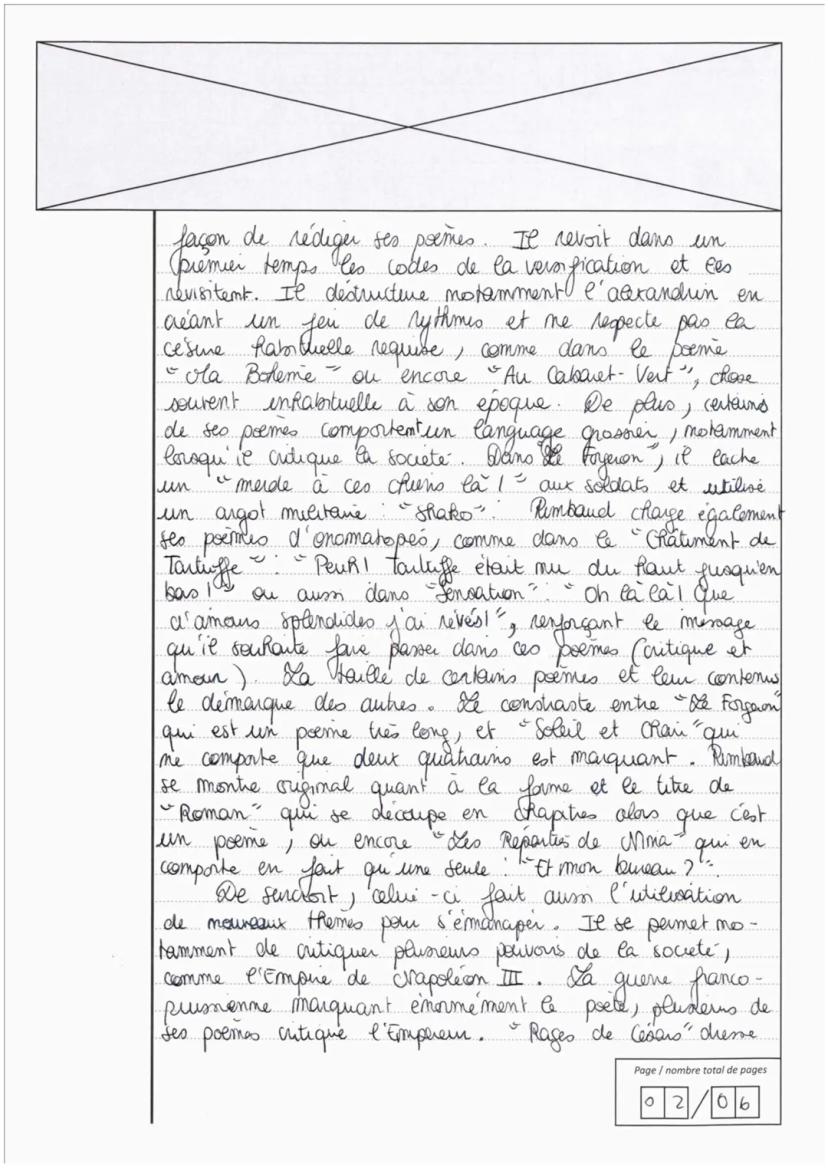 façon de rédiger ses poèmes. Il revoit dans un
premier temps les codes de la versification et les
revisitent. Il déstructure notamment l'alexandrin en
créant un jeu de rythmes et ne respecte pas la
césure habituelle requise, comme dans le poème
"Ma Bohème" ou encore "Au Cabaret-Vert", chose
souvent inhabituelle à son époque. De plus, certains
de ses poèmes comportent un language grossier, notamment
lorsqu'il critique la société. Dans "Le Forgeron", il lache
un "merde à ces chiens là !" aux soldats et utilise
un argot militaire : "Shako". Rimbaud charge également
ses poèmes d'onomatopés, comme dans le "Châtiment de
Tartuffe" : "Peuh! Tartuffe était nu du haut jusqu'en
bas !" ou aussi dans "Sensation" : "Oh là là ! Que
d'amours splendides j'ai rêvés!", renforçant le message
qu'il souhaite faire passer dans ces poèmes (critique et
amour). La taille de certains poèmes et leur contenus
le démarque des autres. Le constraste entre "Le Forgeron"
qui est un poème très long, et "Soleil et Chair" qui
ne comporte que deux quatrains est marquant. Rimbaud
se montre original quant à la forme et le titre de
"Roman" qui se découpe en chapitres alors que c'est
un poème, ou encore "Les Reparties de Nina" qui en
comporte en fait qu'une seule : "Et mon bureau ?".
De surcroit, celui-ci fait aussi l'utilisation
de nouveaux thèmes pour s'émanciper. Il se permet no-
tamment de critiquer plusieurs pouvoirs de la société,
comme l'Empire de Napoléon III. La guerre franco-
prussienne marquant énormément le poète, plusieurs de
ses poèmes critique l'Empereur. "Rages de Césars" dresse
Page / nombre total de pages
02/06